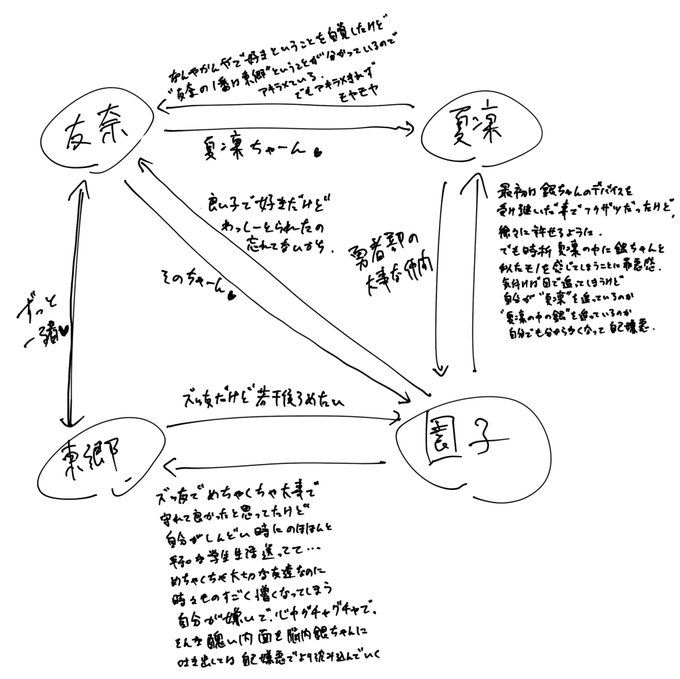 なんやかんやで好きということを自覚したけど
"友奈の1番は東郷"ということが分かっているので
アキラメている。
でもアキラメきれず
モヤモヤ
友奈
夏凜
夏凜ちゃーん♥
良い子で好きだけど
わっしーとられたの
忘れてないから.
そのちゃーん♥
勇者部の
大事な仲間
最初は銀ちゃんのデバイスを
受け継いだ事でフクザツだったけど、
徐々に許せるように.
でも時折夏凜の中に銀ちゃんと
似たモノを感じてしまうことに罪悪感.
気付けば目で追ってしまうけど
自分が"夏凜"を追っているのか
"夏凜の中の銀"を追っているのか
自分でも分からなくなって自己嫌悪.
ずっと
一緒♥
ズッ友だけど若干後ろめたい
東郷
園子
ズッ友でめちゃくちゃ大事で
守れて良かったと思ってたけど
自分がしんどい時にのほほんと
平和な学生生活送ってて…
めちゃくちゃ大切な友達なのに
時々ものすごく憎くなってしまう
自分が嫌いで、心中グチャグチャで、
そんな醜い内面を脳内銀ちゃんに
吐き出しては自己嫌悪でより沈み込んでいく